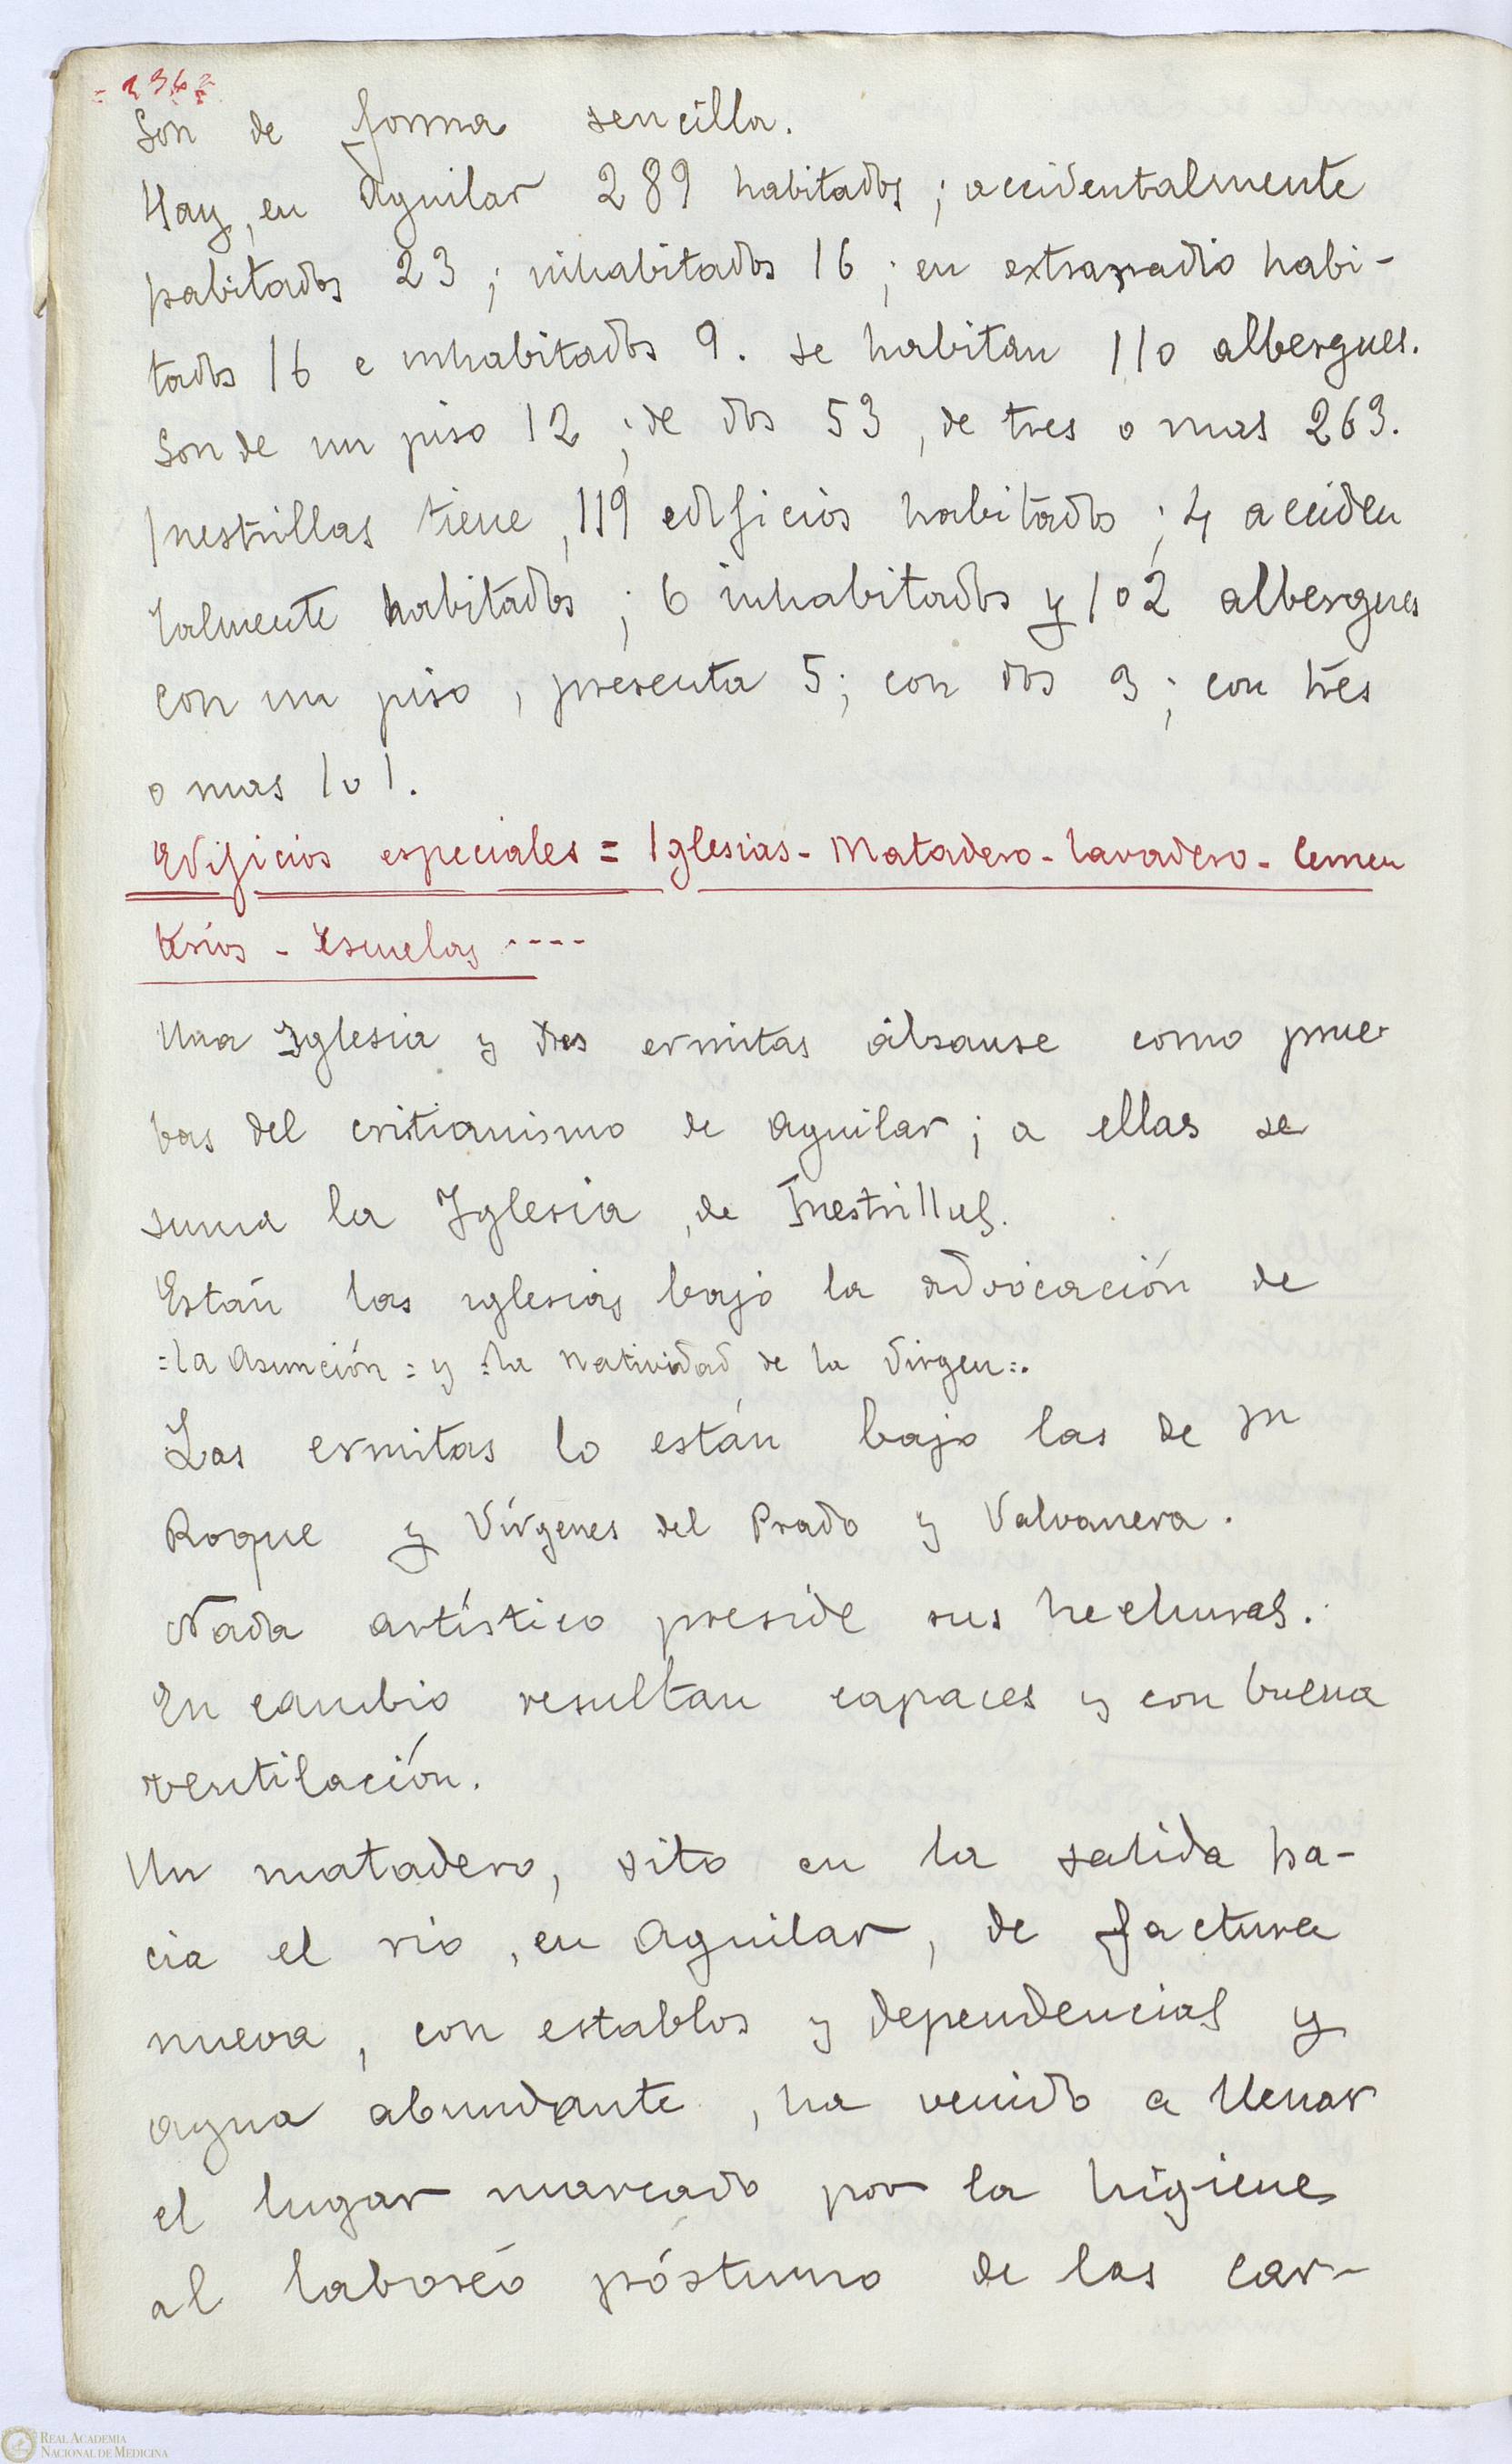 Son de forma sencilla.
Hay, en Aguilar 289 habitados; accidentalmente
habitados 23; inhabitados 16; en extrarradio habi-
tados 16 e inhabitados 9. se habitan 110 albergues.
Son de un piso 12; de dos 53, de tres o mas 263.
Inestrillas tiene, 119 edificios habitados; 4 acciden
talmente habitados; 6 inhabitados y 102 albergues
con un piso, presenta 5; con dos 3; con tres
o mas 101.
Edificios especiales = Iglesias - Matadero - Lavadero - Cemen
terios - Escuelas ----
Una Iglesia y tres ermitas álzanse como prue
bas del critianismo de Aguilar; a ellas se
suma la Iglesia, de Inestrillas.
Están las iglesias bajo la advocación de
=la Asunción= y =la Natividad de la Virgen=.
Las ermitas lo están bajo las de
Roque y Vírgenes del Prado y Valvanera.
Nada artístico preside sus hechuras.
En cambio resultan capaces y con buena
ventilación.
Un matadero, sito en la salida ha-
cia el rio, en Aguilar, de factura
nueva, con establos y dependencias y
agua abundante, ha venido a llenar
el lugar marcado por la higiene
al laboreo póstumo de las car-
REAL ACADEMIA
NACIONAL DE MEDICINA